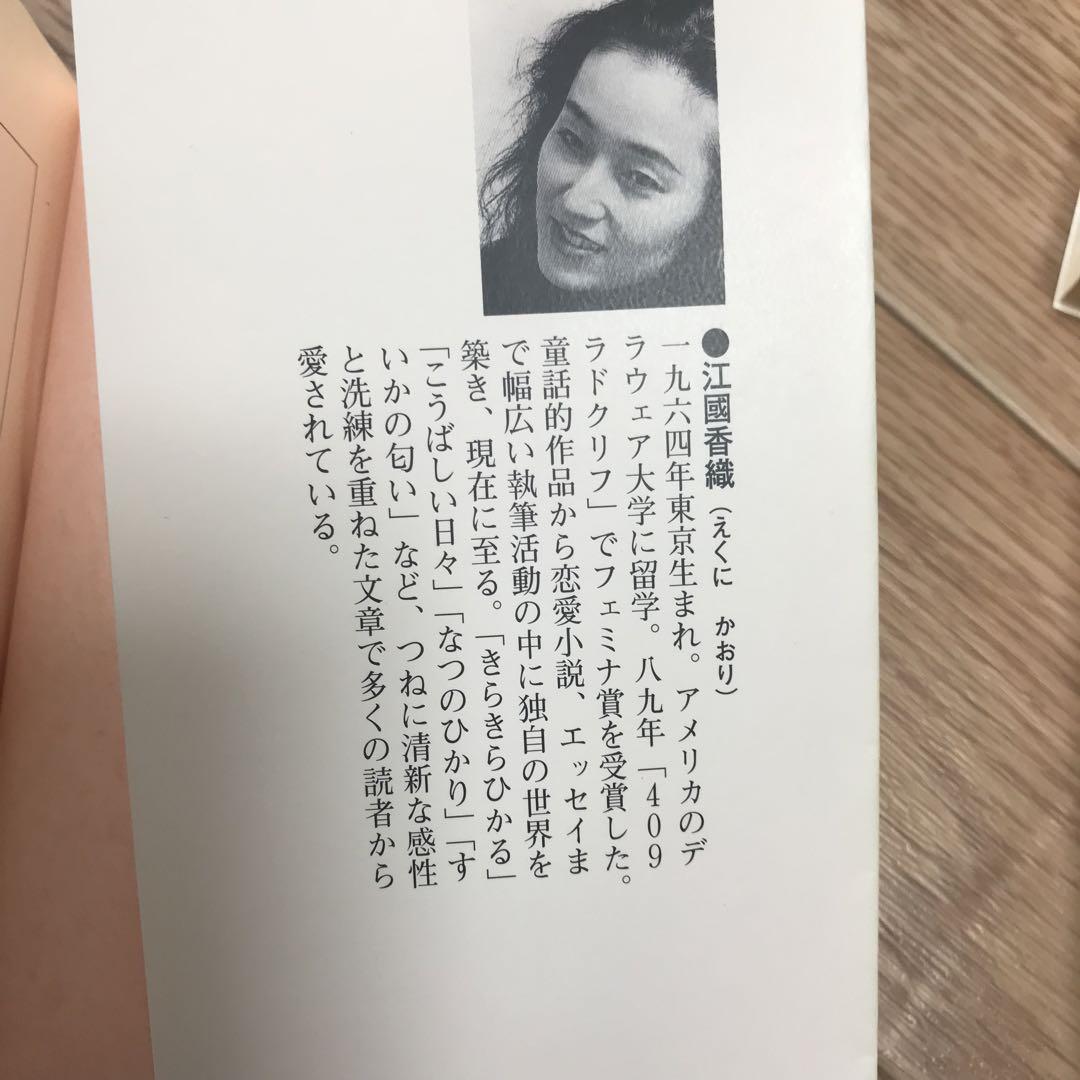 ●江國香織（えくに　かおり）
一九六四年東京生まれ。アメリカのデ
ラウェア大学に留学。八九年「409
ラドクリフ」でフェミナ賞を受賞した。
童話的作品から恋愛小説、エッセイま
で幅広い執筆活動の中に独自の世界を
築き、現在に至る。「きらきらひかる」
「こうばしい日々」「なつのひかり」「す
いかの匂い」など、つねに清新な感性
と洗練を重ねた文章で多くの読者から
愛されている。